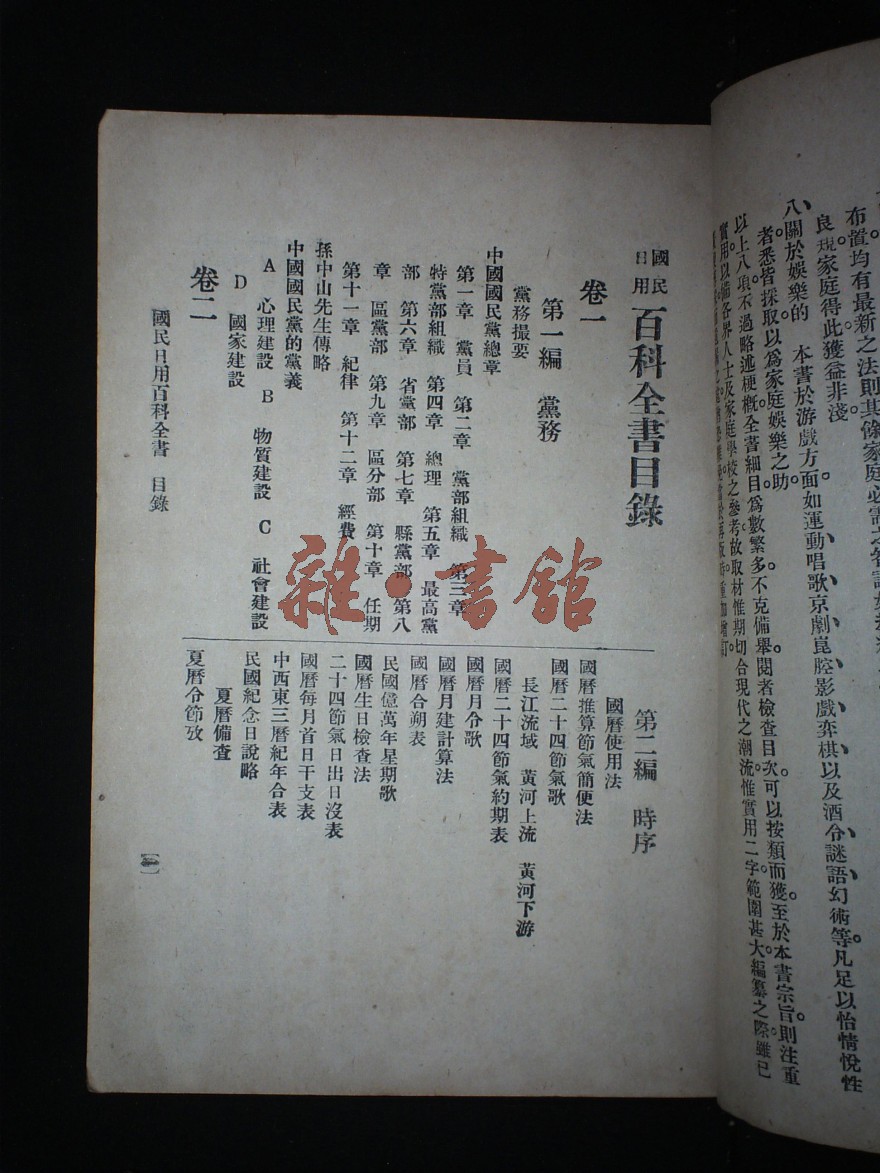 布置均有最新之法則其條家庭必需之智識
良規家庭得此獲益非淺
八、關於娛樂的 本書於游戲方面。如運動、唱歌、京劇、崑腔、影戲、弈棋、以及酒令、謎語、幻術等。凡足以怡情悅性
者。悉皆採取。以爲家庭娛樂之助。
以上八項不過略述梗概。全書細目。爲數繁多。不克備舉。閱者檢查目次。可以按類而獲。至於本書宗旨。則注重
實用。以備各界人士及家庭學校之參考。故取材惟期切合現代之潮流。惟實用二字。範圍甚大。編纂之際。雖已
國民日用 百科全書目錄
卷一
第一編 黨務
黨務撮要
中國國民黨總章
第一章 黨員 第二章 黨部組織 第三章
特黨部組織 第四章 總理 第五章 最高黨
部 第六章 省黨部 第七章 縣黨部 第八
章 區黨部 第九章 區分部 第十章 任期
第十一章 紀律 第十二章 經費
孫中山先生傳略
中國國民黨的黨義
A 心理建設 B 物質建設 C 社會建設
D 國家建設
卷二
第二編 時序
國曆使用法
國曆推算節氣簡便法
國曆二十四節氣歌
長江流域 黃河上流 黃河下游
國曆二十四節氣約期表
國曆月令歌
國曆月建計算法
國曆合朔表
民國億萬年星期歌
國曆生日檢查法
二十四節氣日出日沒表
國曆每月首日干支表
中西東三曆紀年合表
民國紀念日說略
夏曆備查
夏曆令節攷
國民日用百科全書 目錄
雜·書館